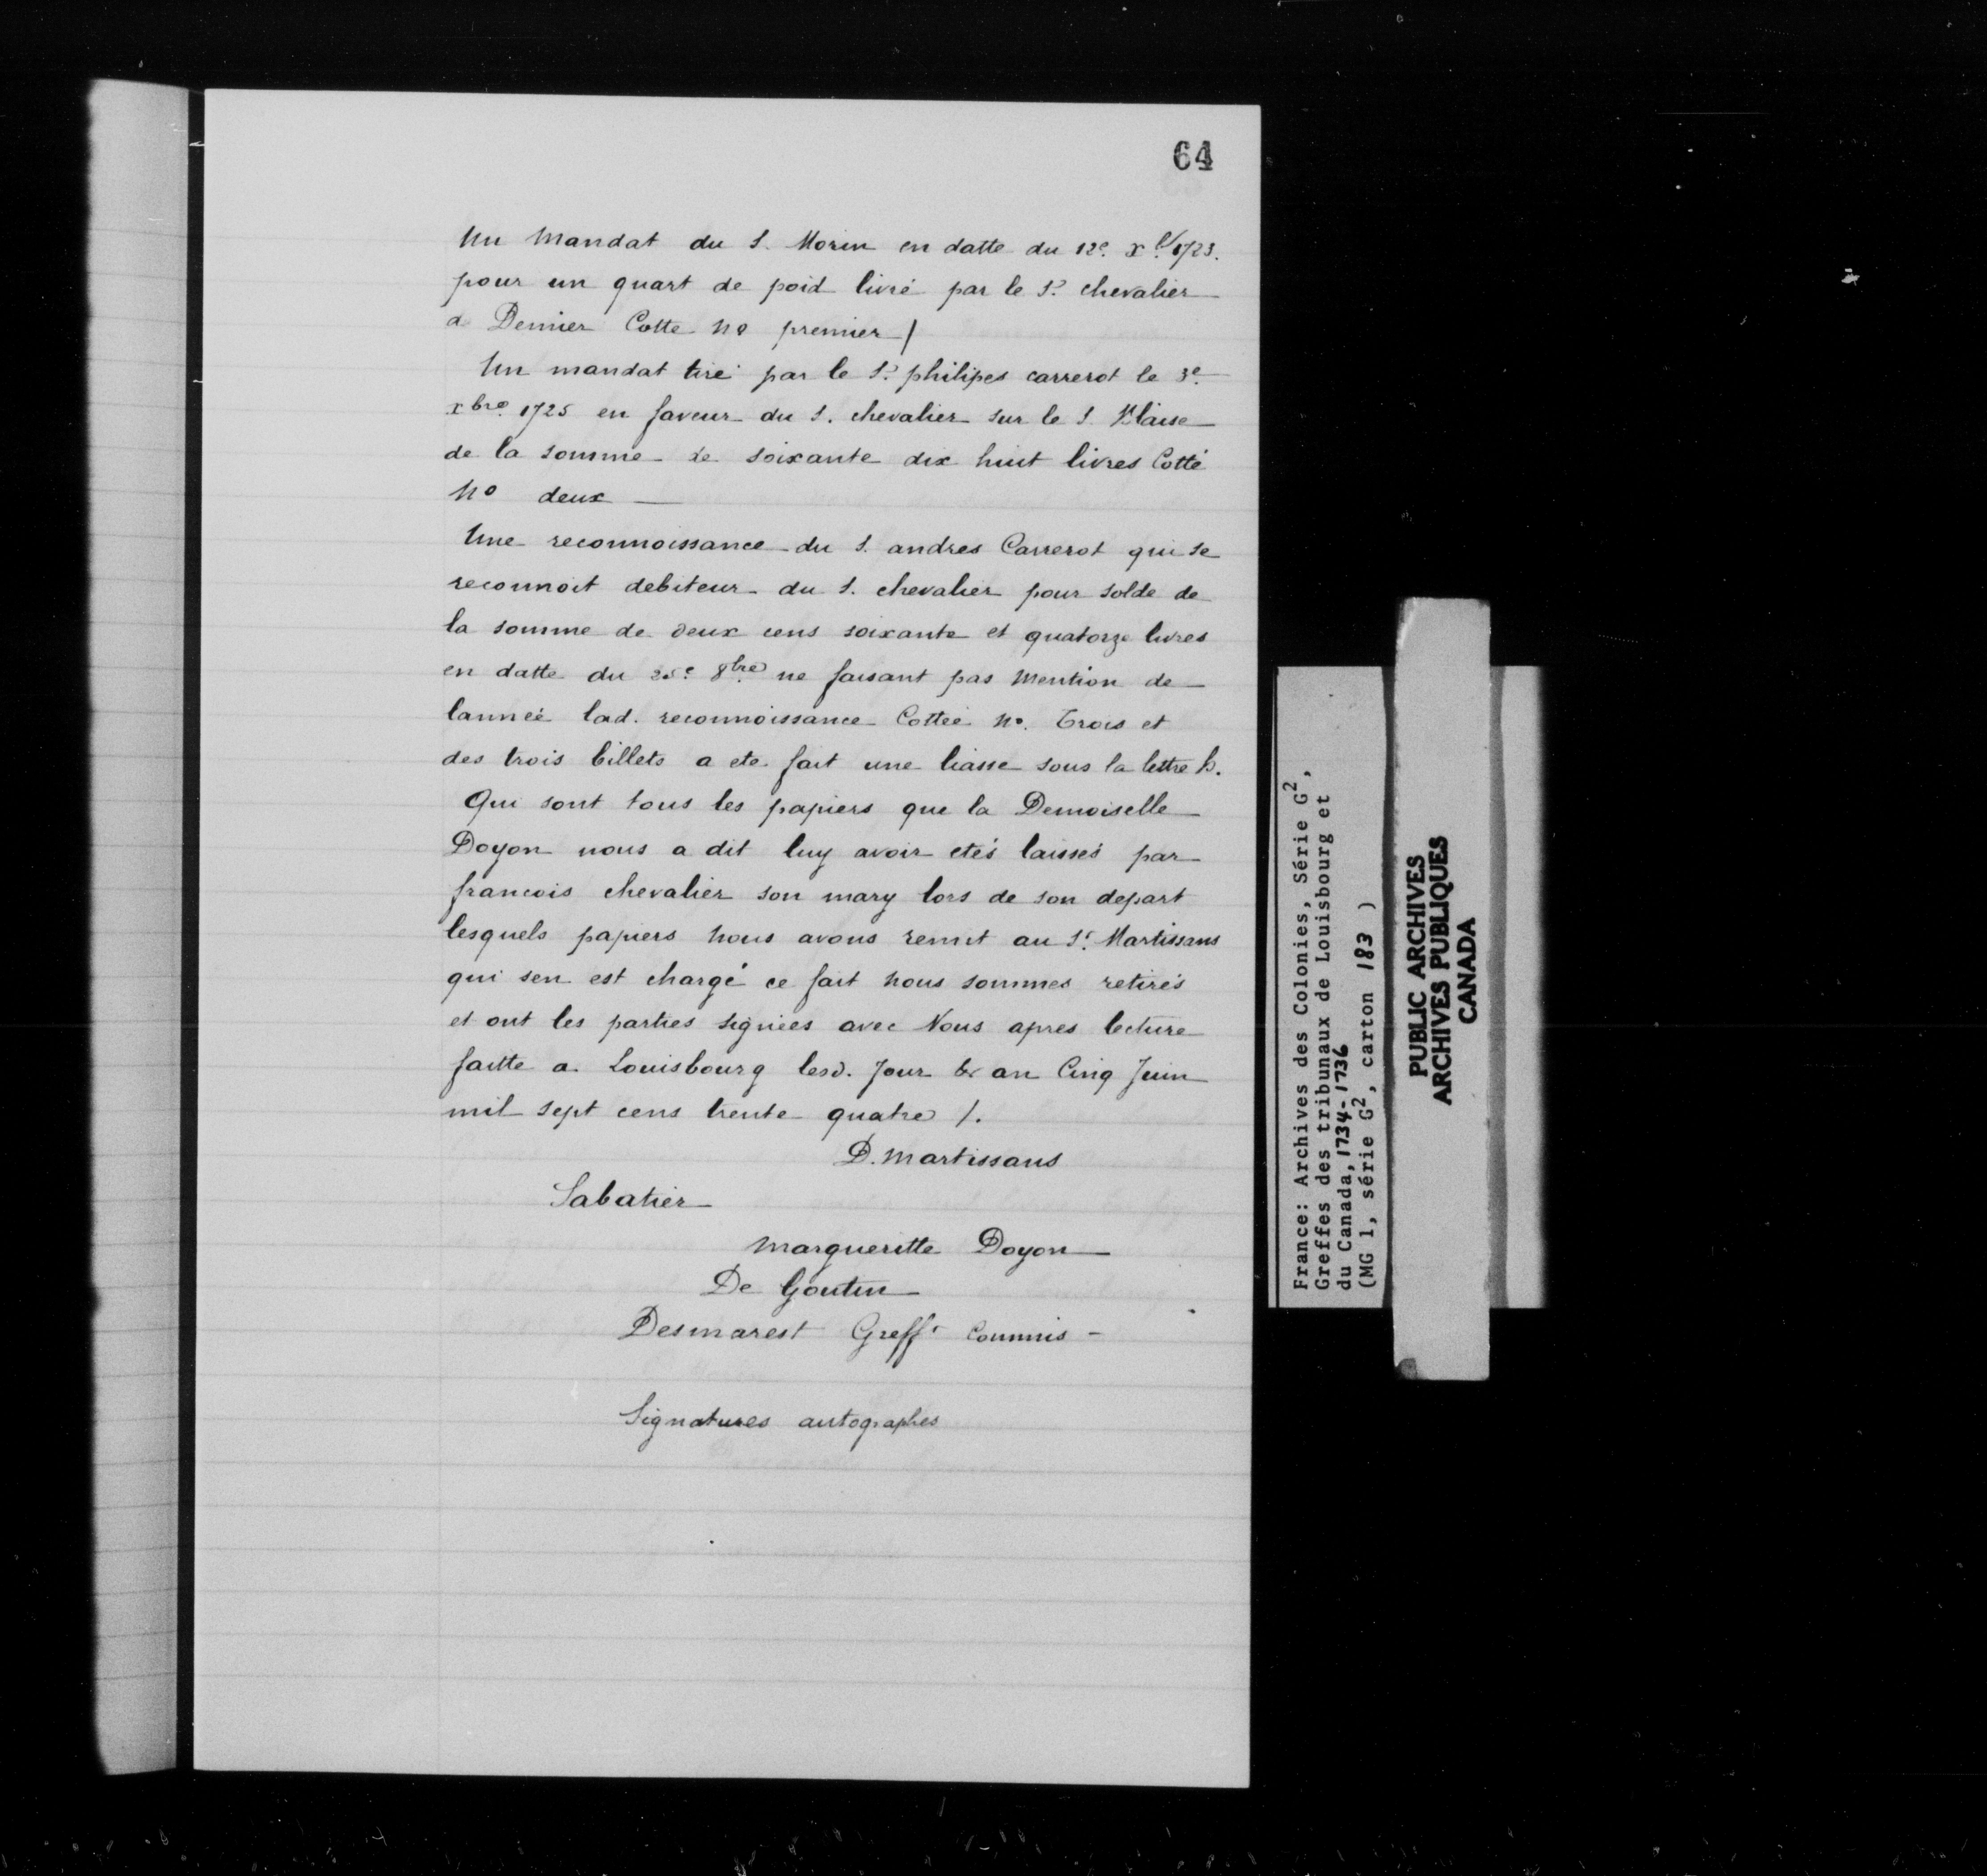 64
Un Mandat du S. Morin en datte du 12e. xe/1723.
pour un quart de poid livré par le Sr. chevalier
a Denier Cotte No premier /
Un mandat tiré par le Sr. philipes carrerot le 3e.
xbre. 1725 en faveur du S. chevalier sur le S. Blaise
de la somme de soixante dix huit livres Cotté
No deux
Une reconnoissance du S. andres Carrerot qui se
reconnoit debiteur du S. chevalier pour solde de
la somme de deux cens soixante et quatorze livres
en datte du 25e. 8bre ne faisant pas Mention de
lanneé lad. reconnoissance Cotteé No. Trois et
des trois billets a ete fait une liasse sous la lettre h.
Qui sont tous les papiers que la Demoiselle
Doyon nous a dit luy avoir etés laissés par
francois chevalier son mary lors de son depart
lesquels papiers nous avons remit au Sr. Martissans
qui sen est chargé ce fait nous sommes retirés
et ont les parties signées avec Nous apres lecture
faitte a Louisbourg lesd. Jour & an Cinq Juin
mil sept cens trente quatre /.
D. Martissans
Sabatier
Margueritte Doyon
De Goutin
Desmarest Greffr Commis -
Signatures autographes
France: Archives des Colonies, Série G2,
Greffes des tribunaux de Louisbourg et
du Canada, 1734-1736
(MG 1, série G2, carton 183 )
PUBLIC ARCHIVES
ARCHIVES PUBLIQUES
CANADA